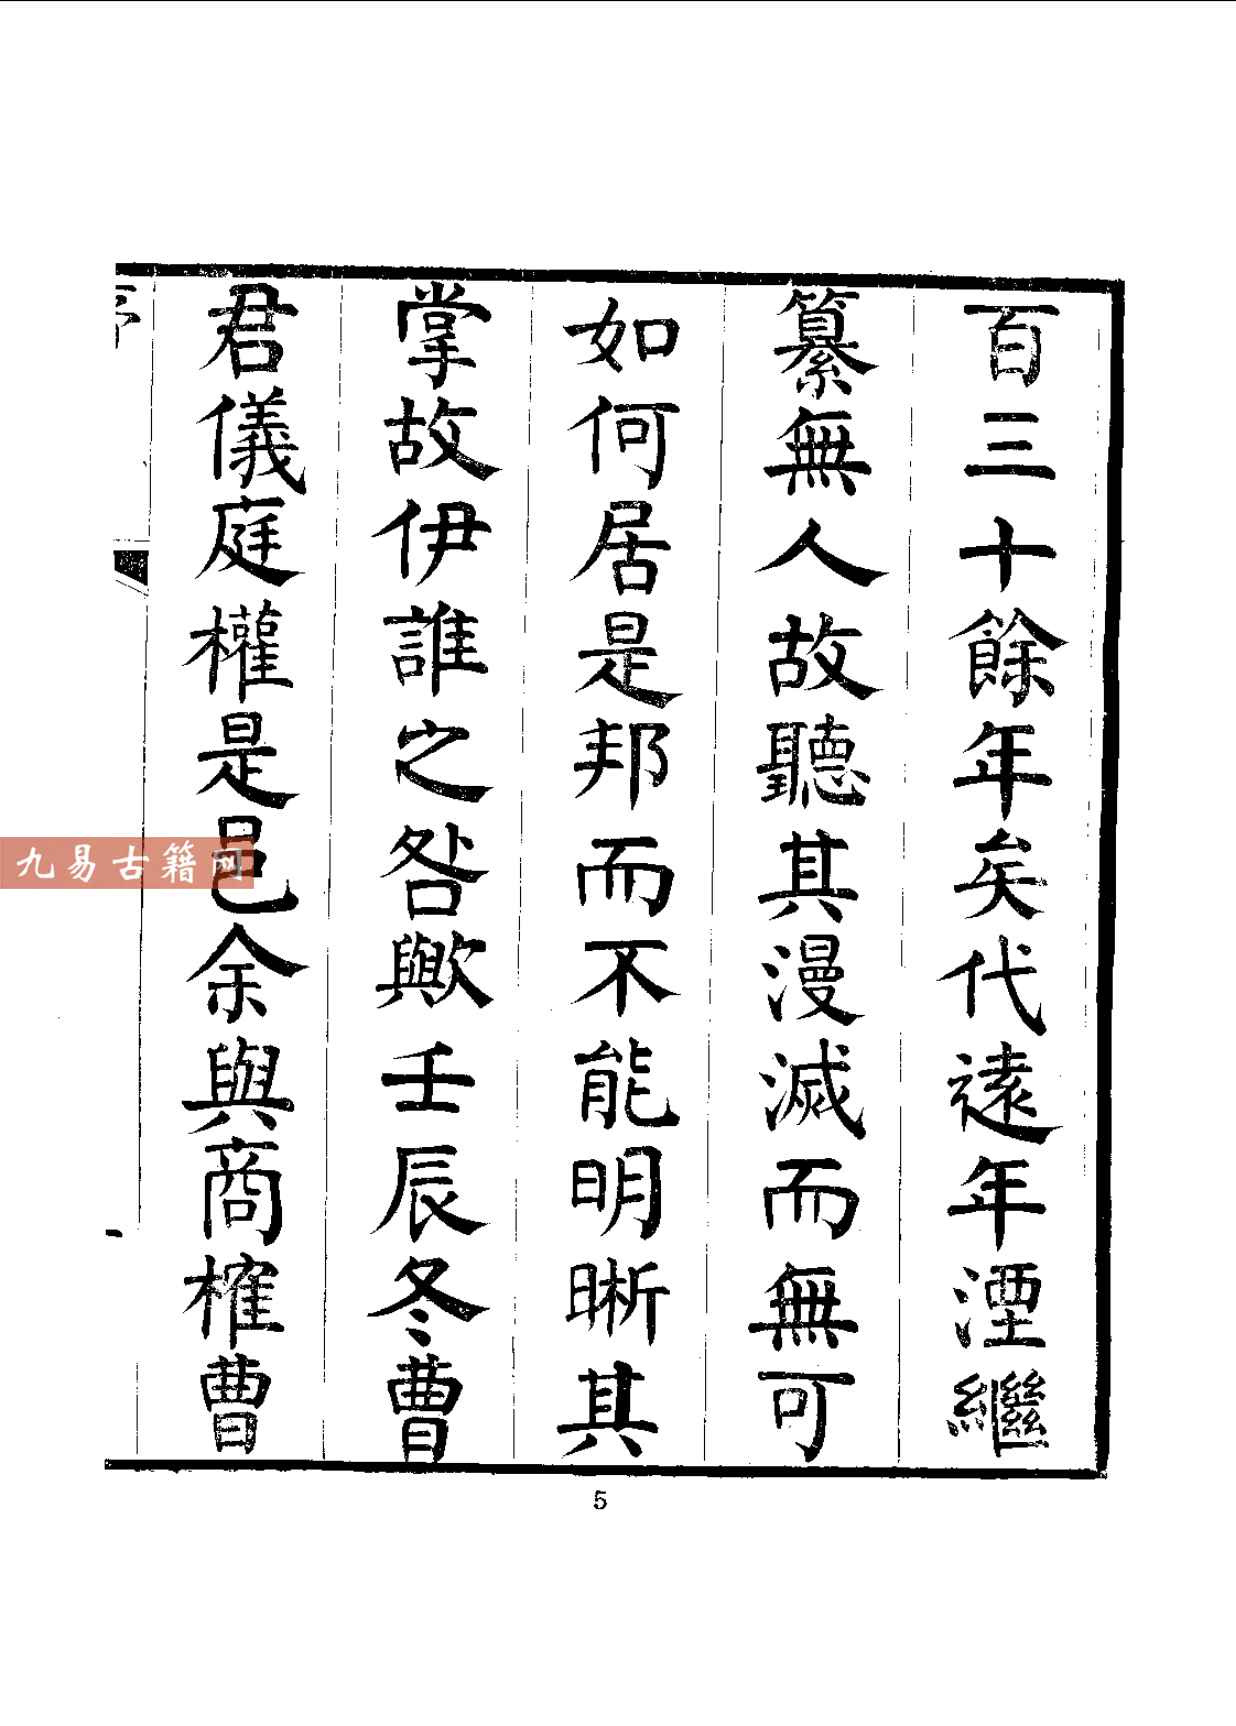 百三十餘年矣代遠年湮繼
纂無人故聽其漫滅而無可
如何居是邦而不能明晰其
掌故伊誰之咎歟壬辰冬曹
君儀庭權是邑余與商榷曹
序
一
5
九易古籍网